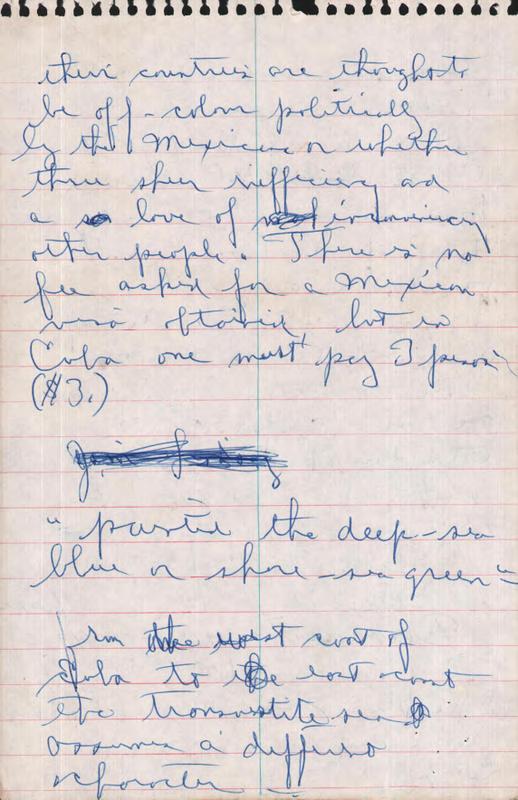 their countries are thought to
be off-colour politically
by the Mexicans or whether
through sheer inefficiency and
a love of inconveniencing
other people. There is no
fee asked for a Mexican
visa obtained, but in
Cuba one must pay 3 pesos
($3.)
"pastel the deep-sea
blue or shore-sea green"
From the west coast of
Cuba to the east coast
the transvestite sea
assumes a different